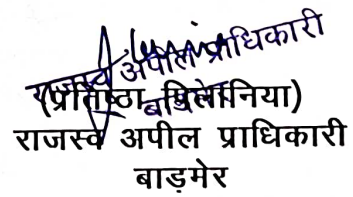 राजस्व अपील प्राधिकारी
(प्रतिष्ठा पिलानिया)
राजस्व अपील प्राधिकारी
बाड़मेर